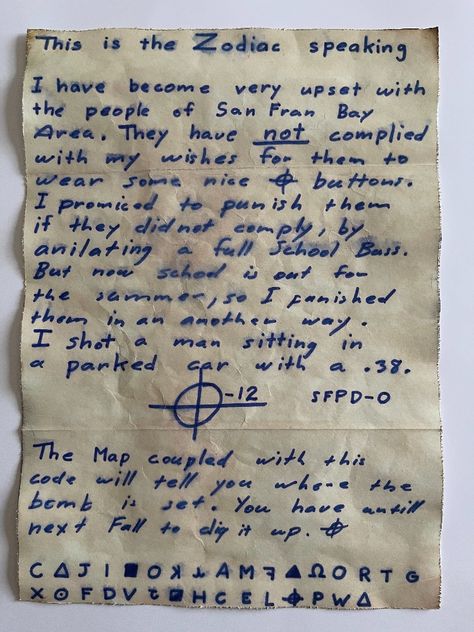 This is the Zodiac speaking
I have become very upset with
the people of San Fran Bay
Area. They have not complied
with my wishes for them to
wear some nice ⌖ buttons.
I promiced to punish them
if they did not comply, by
anilating a full School Buss.
But now school is out for
the summer, so I punished
them in an another way.
I shot a man sitting in
a parked car with a .38.
⌖ -12 SFPD-0
The Map coupled with this
code will tell you where the
bomb is set. You have untill
next Fall to dig it up. ⌖
C Δ J I ■ O ꓘ ⅄ A M ꟻ ▲ Ω O R T G
X ⊙ F D V ■ H C E L ⌖ P W Δ